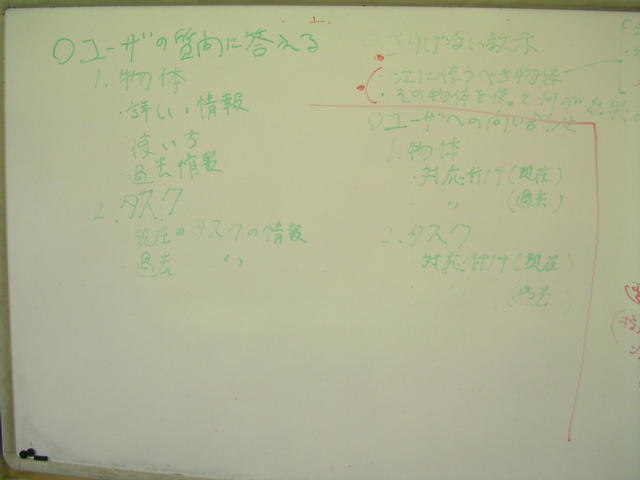 ○ユーザの質問に答える
1. 物体
・詳しい情報
使い方
過去情報
2. タスク
現在のタスクの情報
過去 〃
○さりげない教示
・次に使うべき物体
・その物体を使って何が
○ユーザへの問い合わせ
1. 物体
・対応付け(現在)
〃 (過去)
2. タスク
対応付け(現在)
(過去)